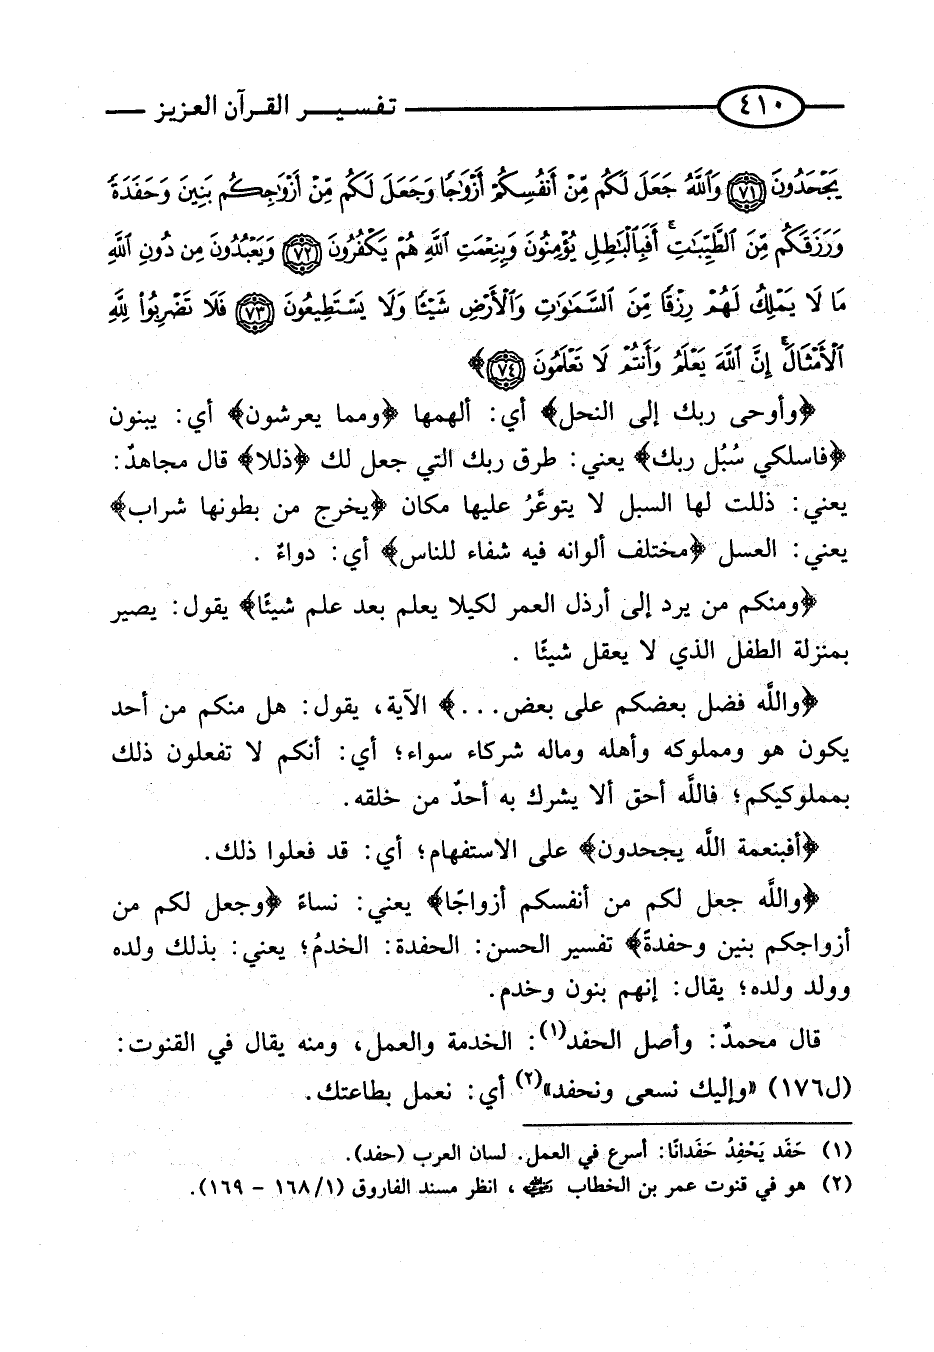 ٤١٠ تفسير القرآن العزيز
يَجْحَدُونَ ﴿٧١﴾ وَٱللَّهُ جَعَلَ لَكُم مِّنْ أَنفُسِكُمْ أَزْوَٰجًا وَجَعَلَ لَكُم مِّنْ أَزْوَٰجِكُم بَنِينَ وَحَفَدَةً
وَرَزَقَكُم مِّنَ ٱلطَّيِّبَٰتِ ۚ أَفَبِٱلْبَٰطِلِ يُؤْمِنُونَ وَبِنِعْمَتِ ٱللَّهِ هُمْ يَكْفُرُونَ ﴿٧٢﴾ وَيَعْبُدُونَ مِن دُونِ ٱللَّهِ
مَا لَا يَمْلِكُ لَهُمْ رِزْقًا مِّنَ ٱلسَّمَٰوَٰتِ وَٱلْأَرْضِ شَيْـًٔا وَلَا يَسْتَطِيعُونَ ﴿٧٣﴾ فَلَا تَضْرِبُوا۟ لِلَّهِ
ٱلْأَمْثَالَ ۚ إِنَّ ٱللَّهَ يَعْلَمُ وَأَنتُمْ لَا تَعْلَمُونَ ﴿٧٤﴾﴾
﴿وأوحى ربك إلى النحل﴾ أي: ألهمها ﴿ومما يعرشون﴾ أي: يبنون
﴿فاسلكي سُبُل ربك﴾ يعني: طرق ربك التي جعل لك ﴿ذللا﴾ قال مجاهدٌ:
يعني: ذللت لها السبل لا يتوعَّرُ عليها مكان ﴿يخرج من بطونها شراب﴾
يعني: العسل ﴿مختلف ألوانه فيه شفاء للناس﴾ أي: دواءٌ .
﴿ومنكم من يرد إلى أرذل العمر لكيلا يعلم بعد علم شيئًا﴾ يقول: يصير
بمنزلة الطفل الذي لا يعقل شيئًا .
﴿واللَّه فضل بعضكم على بعض...﴾ الآية، يقول: هل منكم من أحد
يكون هو ومملوكه وأهله وماله شركاء سواء؛ أي: أنكم لا تفعلون ذلك
بمملوكيكم؛ فاللَّه أحق ألا يشرك به أحدٌ من خلقه.
﴿أفبنعمة اللَّه يجحدون﴾ على الاستفهام؛ أي: قد فعلوا ذلك.
﴿واللَّه جعل لكم من أنفسكم أزواجًا﴾ يعني: نساءً ﴿وجعل لكم من
أزواجكم بنين وحفدةً﴾ تفسير الحسن: الحفدة: الخدمُ؛ يعني: بذلك ولده
وولد ولده؛ يقال: إنهم بنون وخدم.
قال محمدٌ: وأصل الحفد(١): الخدمة والعمل، ومنه يقال في القنوت:
(ل١٧٦) «وإليك نسعى ونحفد»(٢) أي: نعمل بطاعتك.
(١) حَفَد يَحْفِدُ حَفَدانًا: أسرع في العمل. لسان العرب (حفد).
(٢) هو في قنوت عمر بن الخطاب رضي الله عنه، انظر مسند الفاروق (١/ ١٦٨ - ١٦٩).